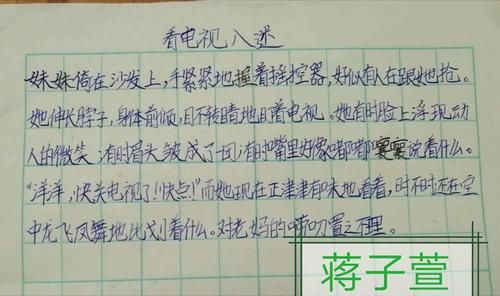 看电视入迷
妹妹倚在沙发上，手紧紧地握着摇控器，好似有人在跟她抢。
她伸长脖子，身体前倾，目不转睛地盯着电视。她有时脸上浮现动
人的微笑，有时眉头皱成了一团，有时嘴里好像嘟嘟囔囔说着什么。
“洋洋，快关电视了！快点！”而她现在正津津有味地看着，时不时还在空
中龙飞凤舞地比划着什么。对老妈的唠叨置之不理。
蒋子萱